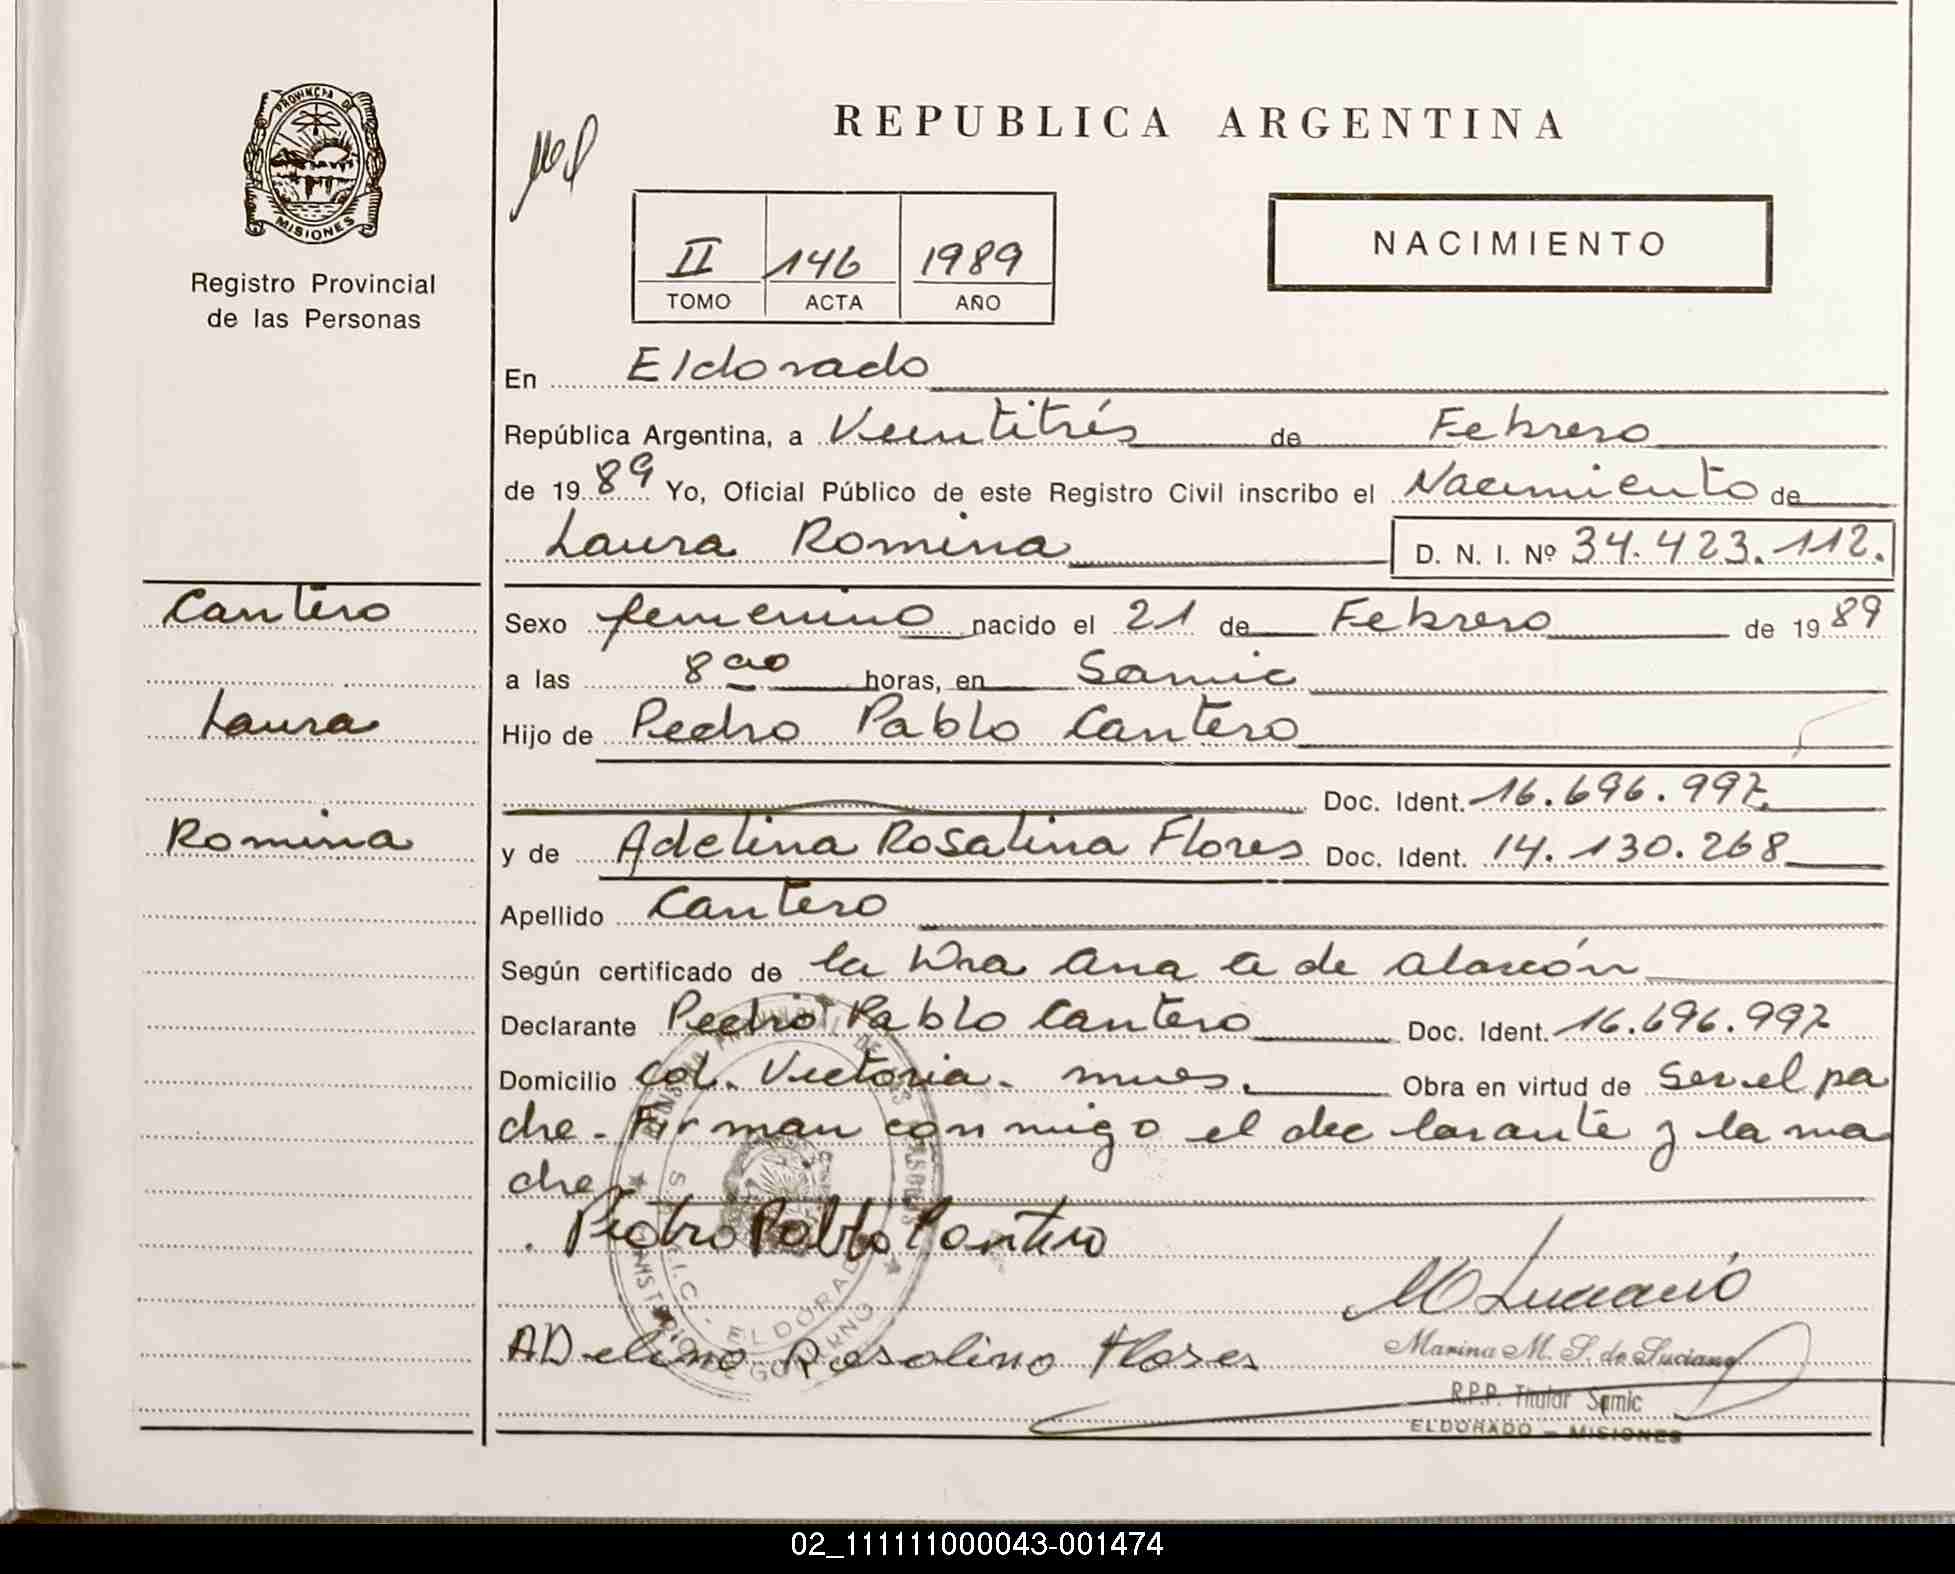 PROVINCIA DE
MISIONES
Registro Provincial
de las Personas
REPUBLICA ARGENTINA
II 146 1989
TOMO ACTA AÑO
NACIMIENTO
En Eldorado
República Argentina, a Veintitrés de Febrero
de 1989 Yo, Oficial Público de este Registro Civil inscribo el Nacimiento de
Laura Romina D. N. I. Nº 34.423.112.
Cantero
Laura
Romina
Sexo femenino nacido el 21 de Febrero de 1989
a las 8 horas, en Samic
Hijo de Pedro Pablo Cantero
Doc. Ident. 16.696.997
y de Adelina Rosalina Flores Doc. Ident. 14.130.268
Apellido Cantero
Según certificado de la Dra Ana a de Alarcón
Declarante Pedro Pablo Cantero Doc. Ident. 16.696.997
Domicilio Col. Victoria. Mnes. Obra en virtud de ser el pa
dre. Firman conmigo el declarante y la ma
dre
Pedro Pablo Cantero
M Luciano
ADelina Rosalina Flores
Marina M. S. de Luciano
R.P.P. Titular Samic
ELDORADO - MISIONES
ELDORADO
02_111111000043-001474